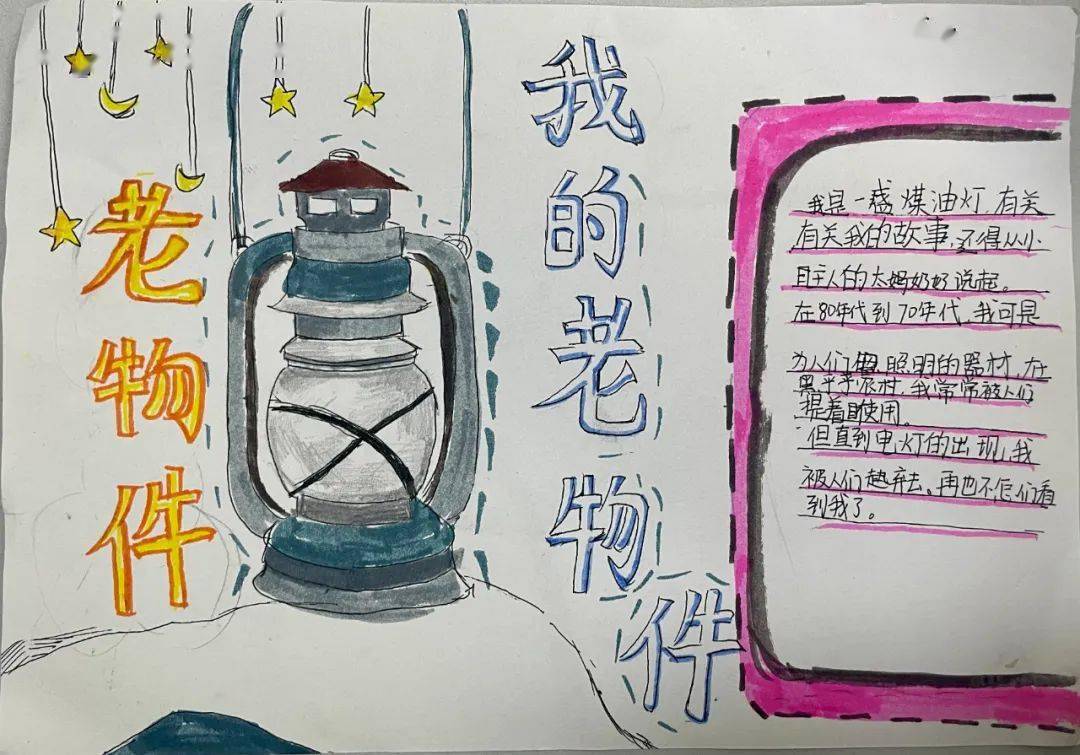 老物件
我的老物件
我是一盏煤油灯有关
有关我的故事,还得从小
主人的太妈奶奶说起。
在80年代到70年代,我可是
为人们照明的器材,在
农村,我常常被人们
提着使用。
但直到电灯的出现,我
被人们弃去、再也不怎们看
到我了。